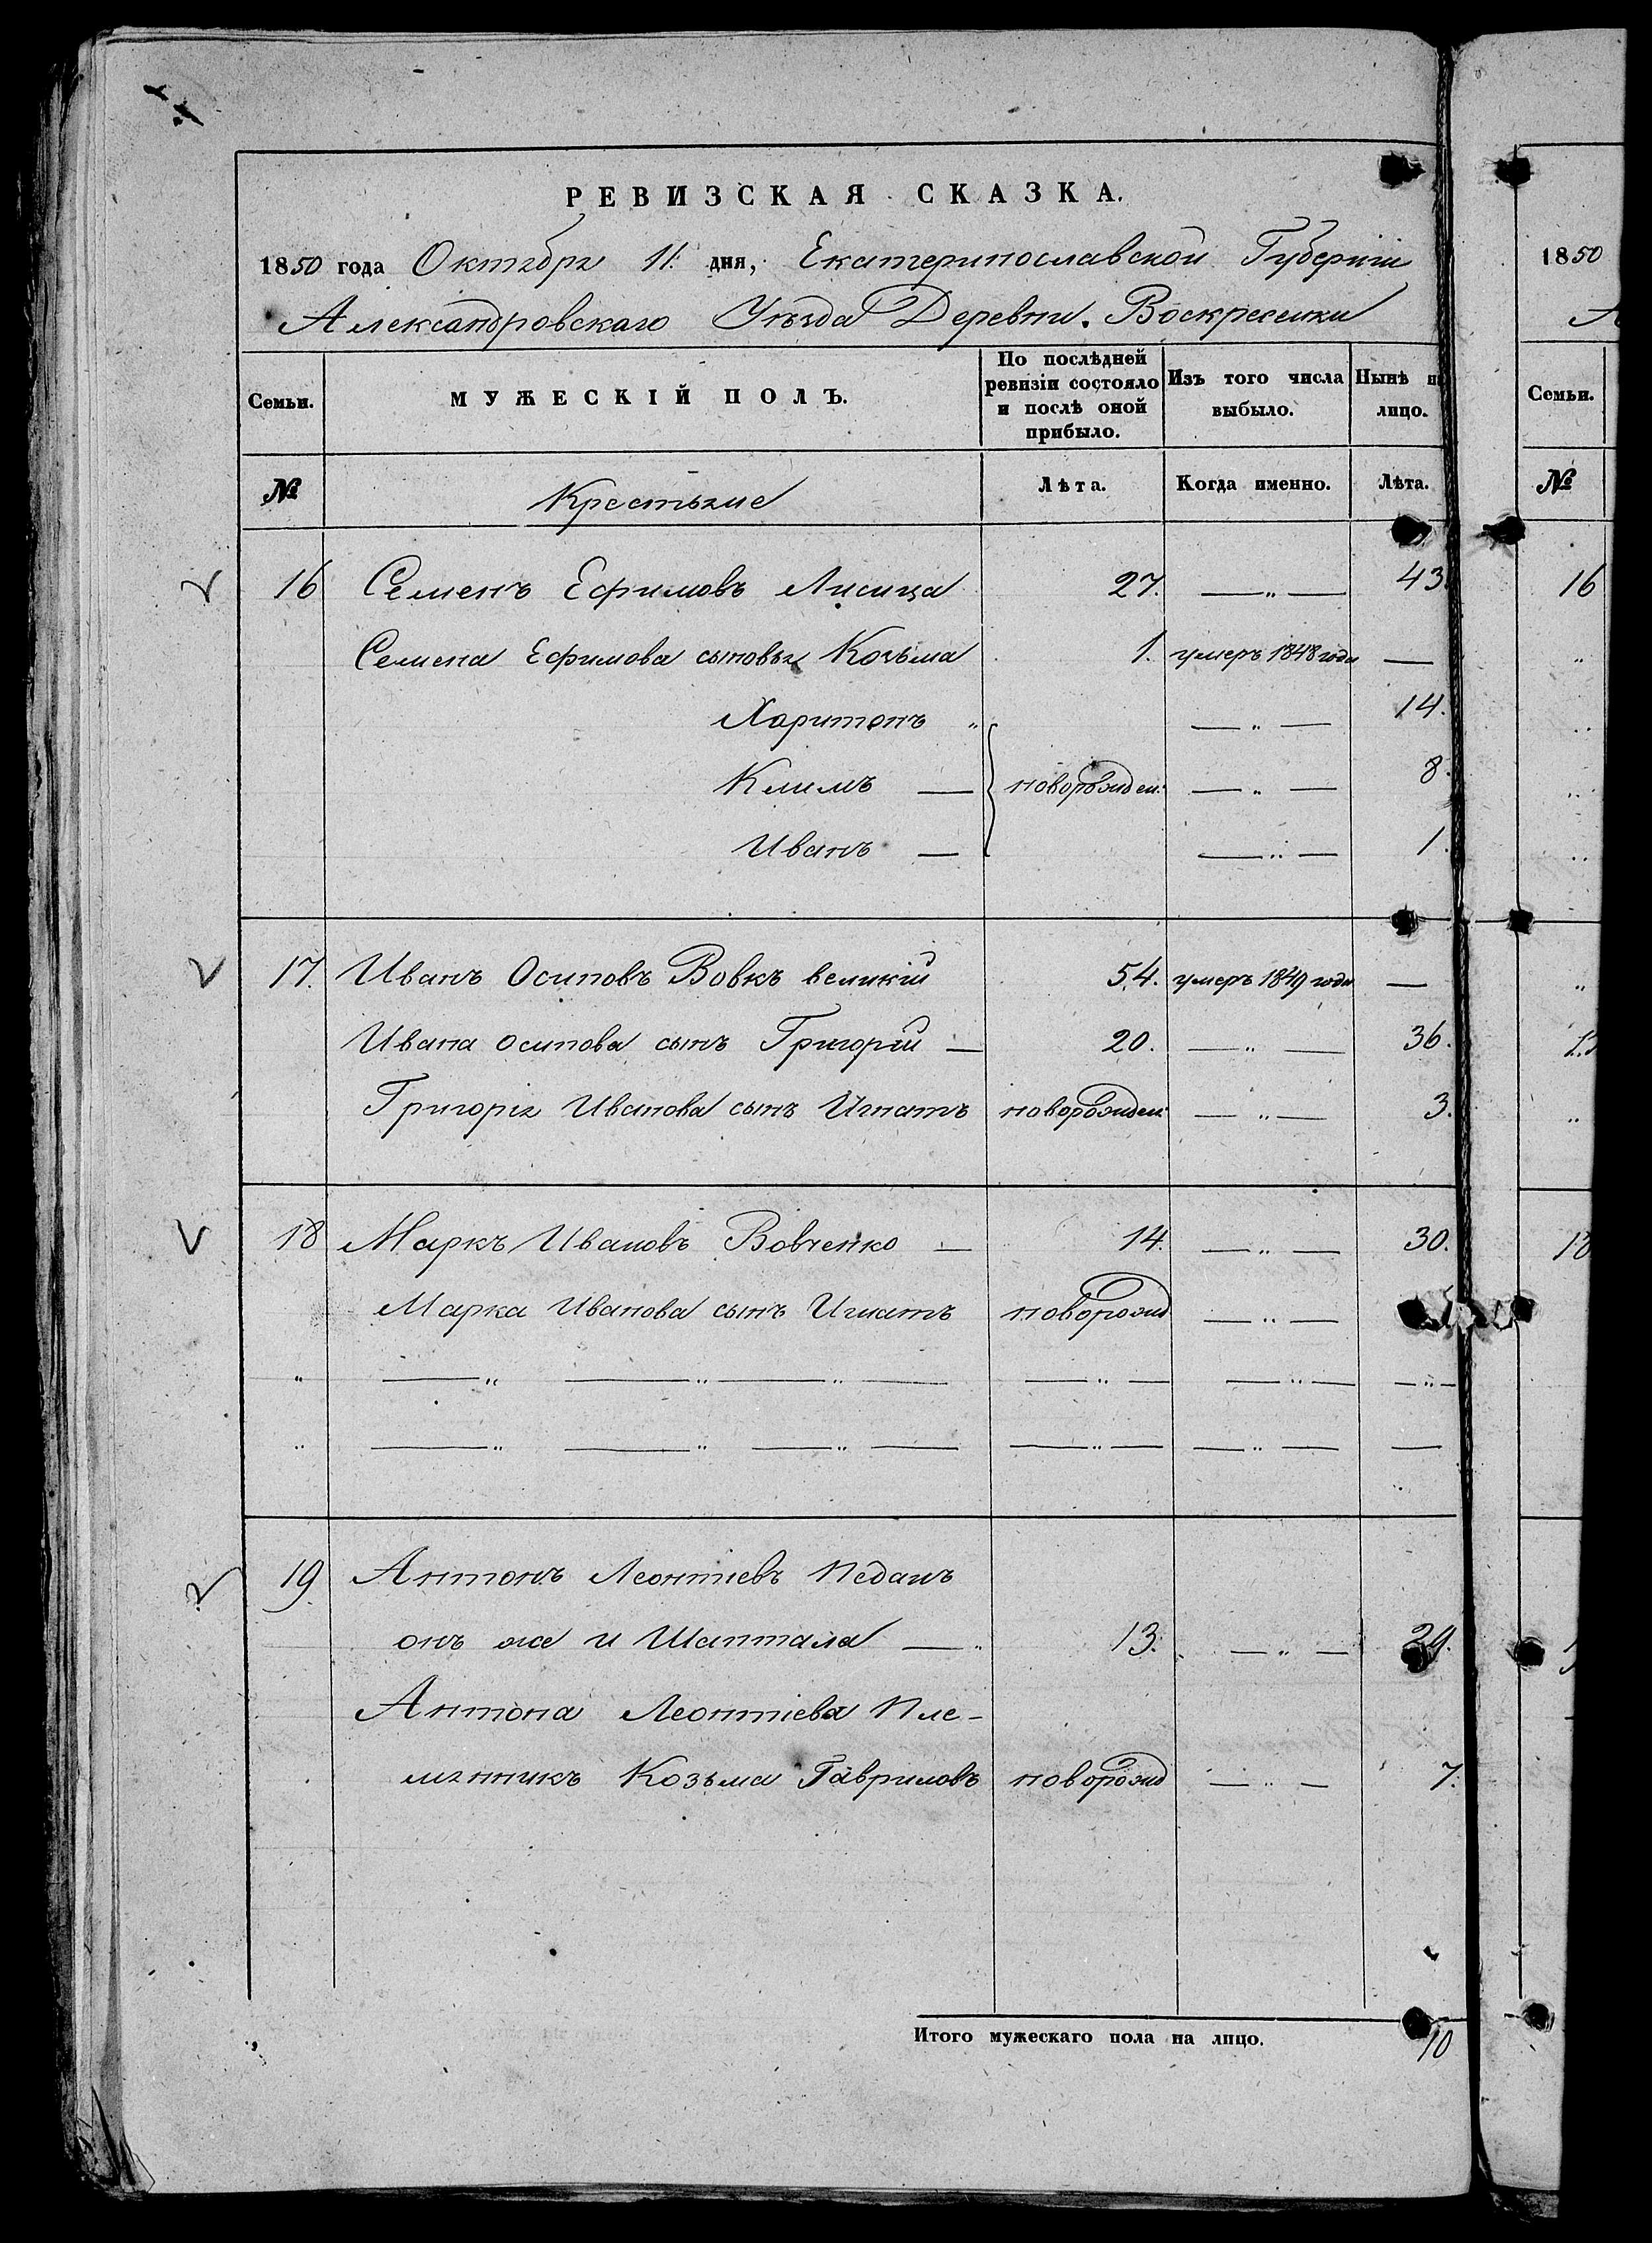 РЕВИЗСКАЯ СКАЗКА.
1850 года Октября 11. дня, Екатеринославской Губерніи
Александровскаго Уѣзда Деревни. Воскресенки
Семьи. МУЖЕСКІЙ ПОЛЪ. По послѣдней ревизіи состояло и послѣ оной прибыло. Изъ того числа выбыло. Нынѣ на лицо.
№ Крестьяне Лѣта. Когда именно. Лѣта.
16 Семенъ Ефимовъ Лисица 27. — „ — 43.
Семена Ефимова сыновья Козьма 1. умеръ 1848 года —
Харитонъ „ — „ — 14.
Климъ — новорожден: — „ — 8.
Иванъ — — „ — 1.
17. Иванъ Осиповъ Вовкъ великій 54. умеръ 1849 года —
Ивана Осипова сынъ Григорій — 20. — „ — 36.
Григорія Иванова сынъ Игнатъ новорожден: — „ — 3.
18 Маркъ Ивановъ Вовченко — 14. — „ — 30.
Марка Иванова сынъ Игнатъ новорожд — „ —
„ — „ — „ — „ — — „ — — „ — — „ —
„ — „ — „ — „ — — „ — — „ — —
19. Антонъ Леонтіевъ Педанъ
онъ же и Шаптала — „ 13. — „ — 29.
Антона Леонтіева Пле-
мянникъ Козьма Гавриловъ новорожд — „ — 7.
Итого мужескаго пола на лицо. 10
1850
Семьи.
№
16
„
„
„
„
„
„
18